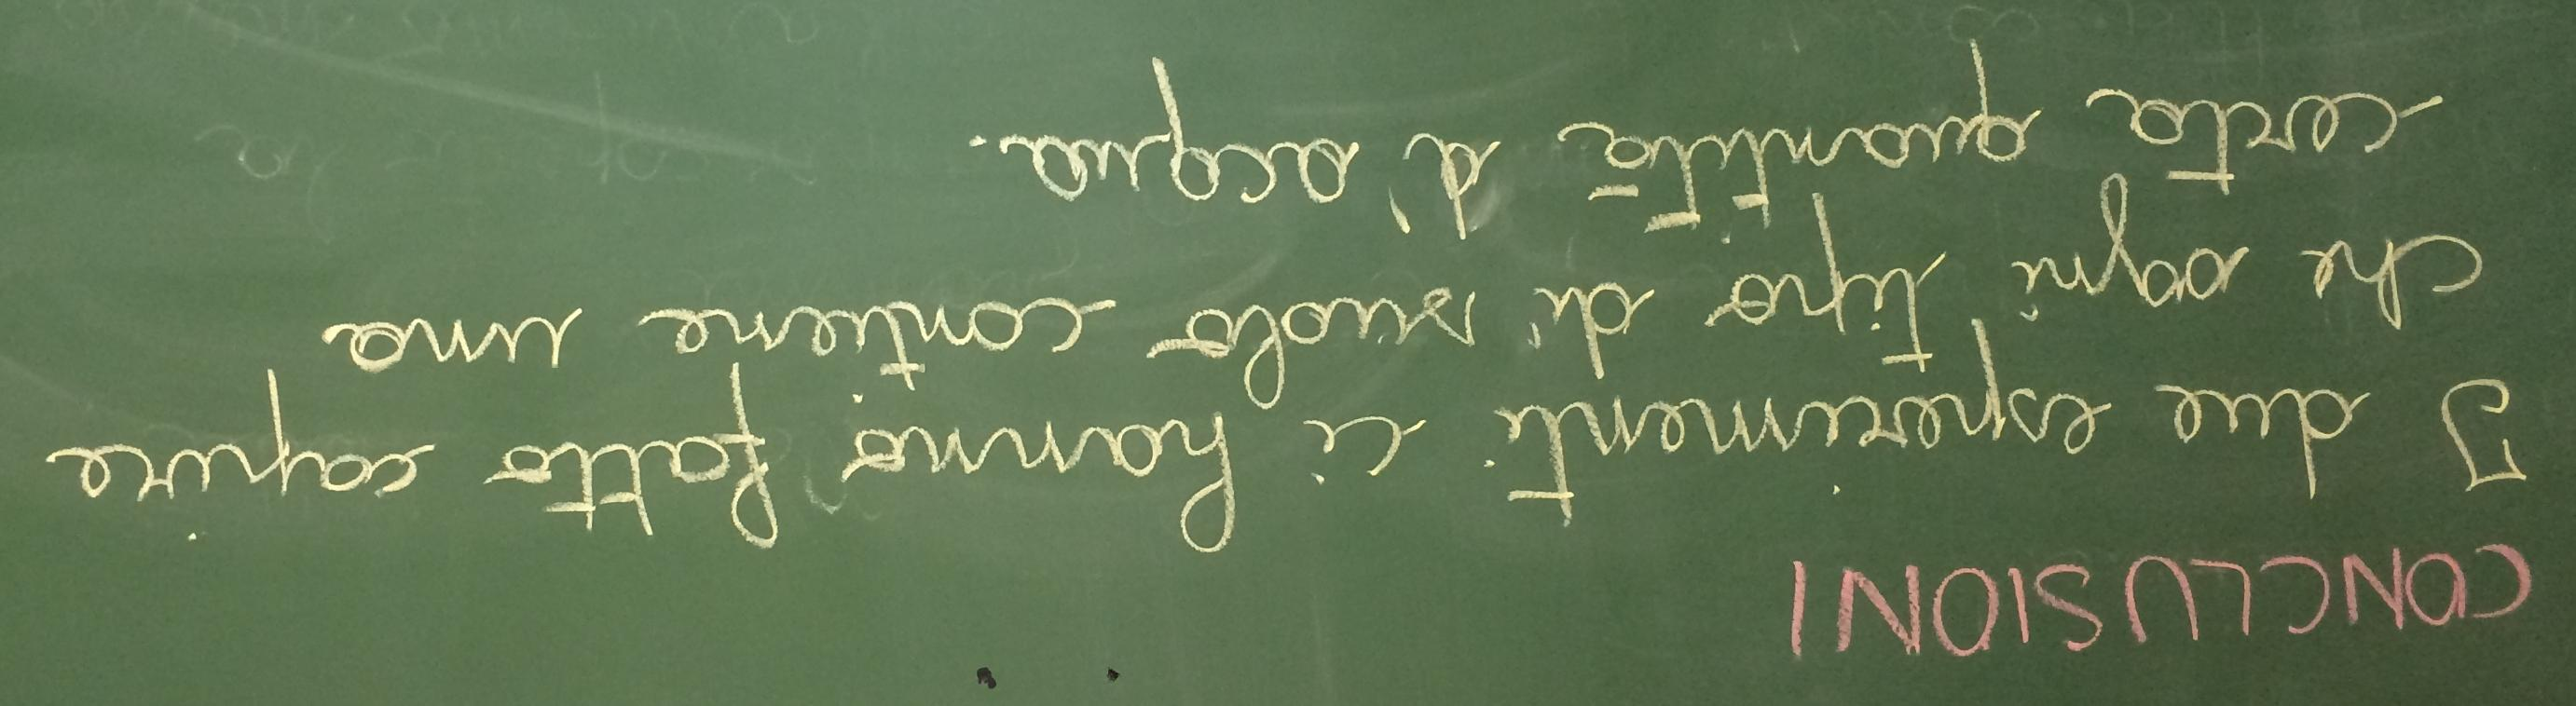 CONCLUSIONI
I due esperimenti ci hanno fatto capire
che ogni tipo di suolo contiene una
certa quantità di acqua.